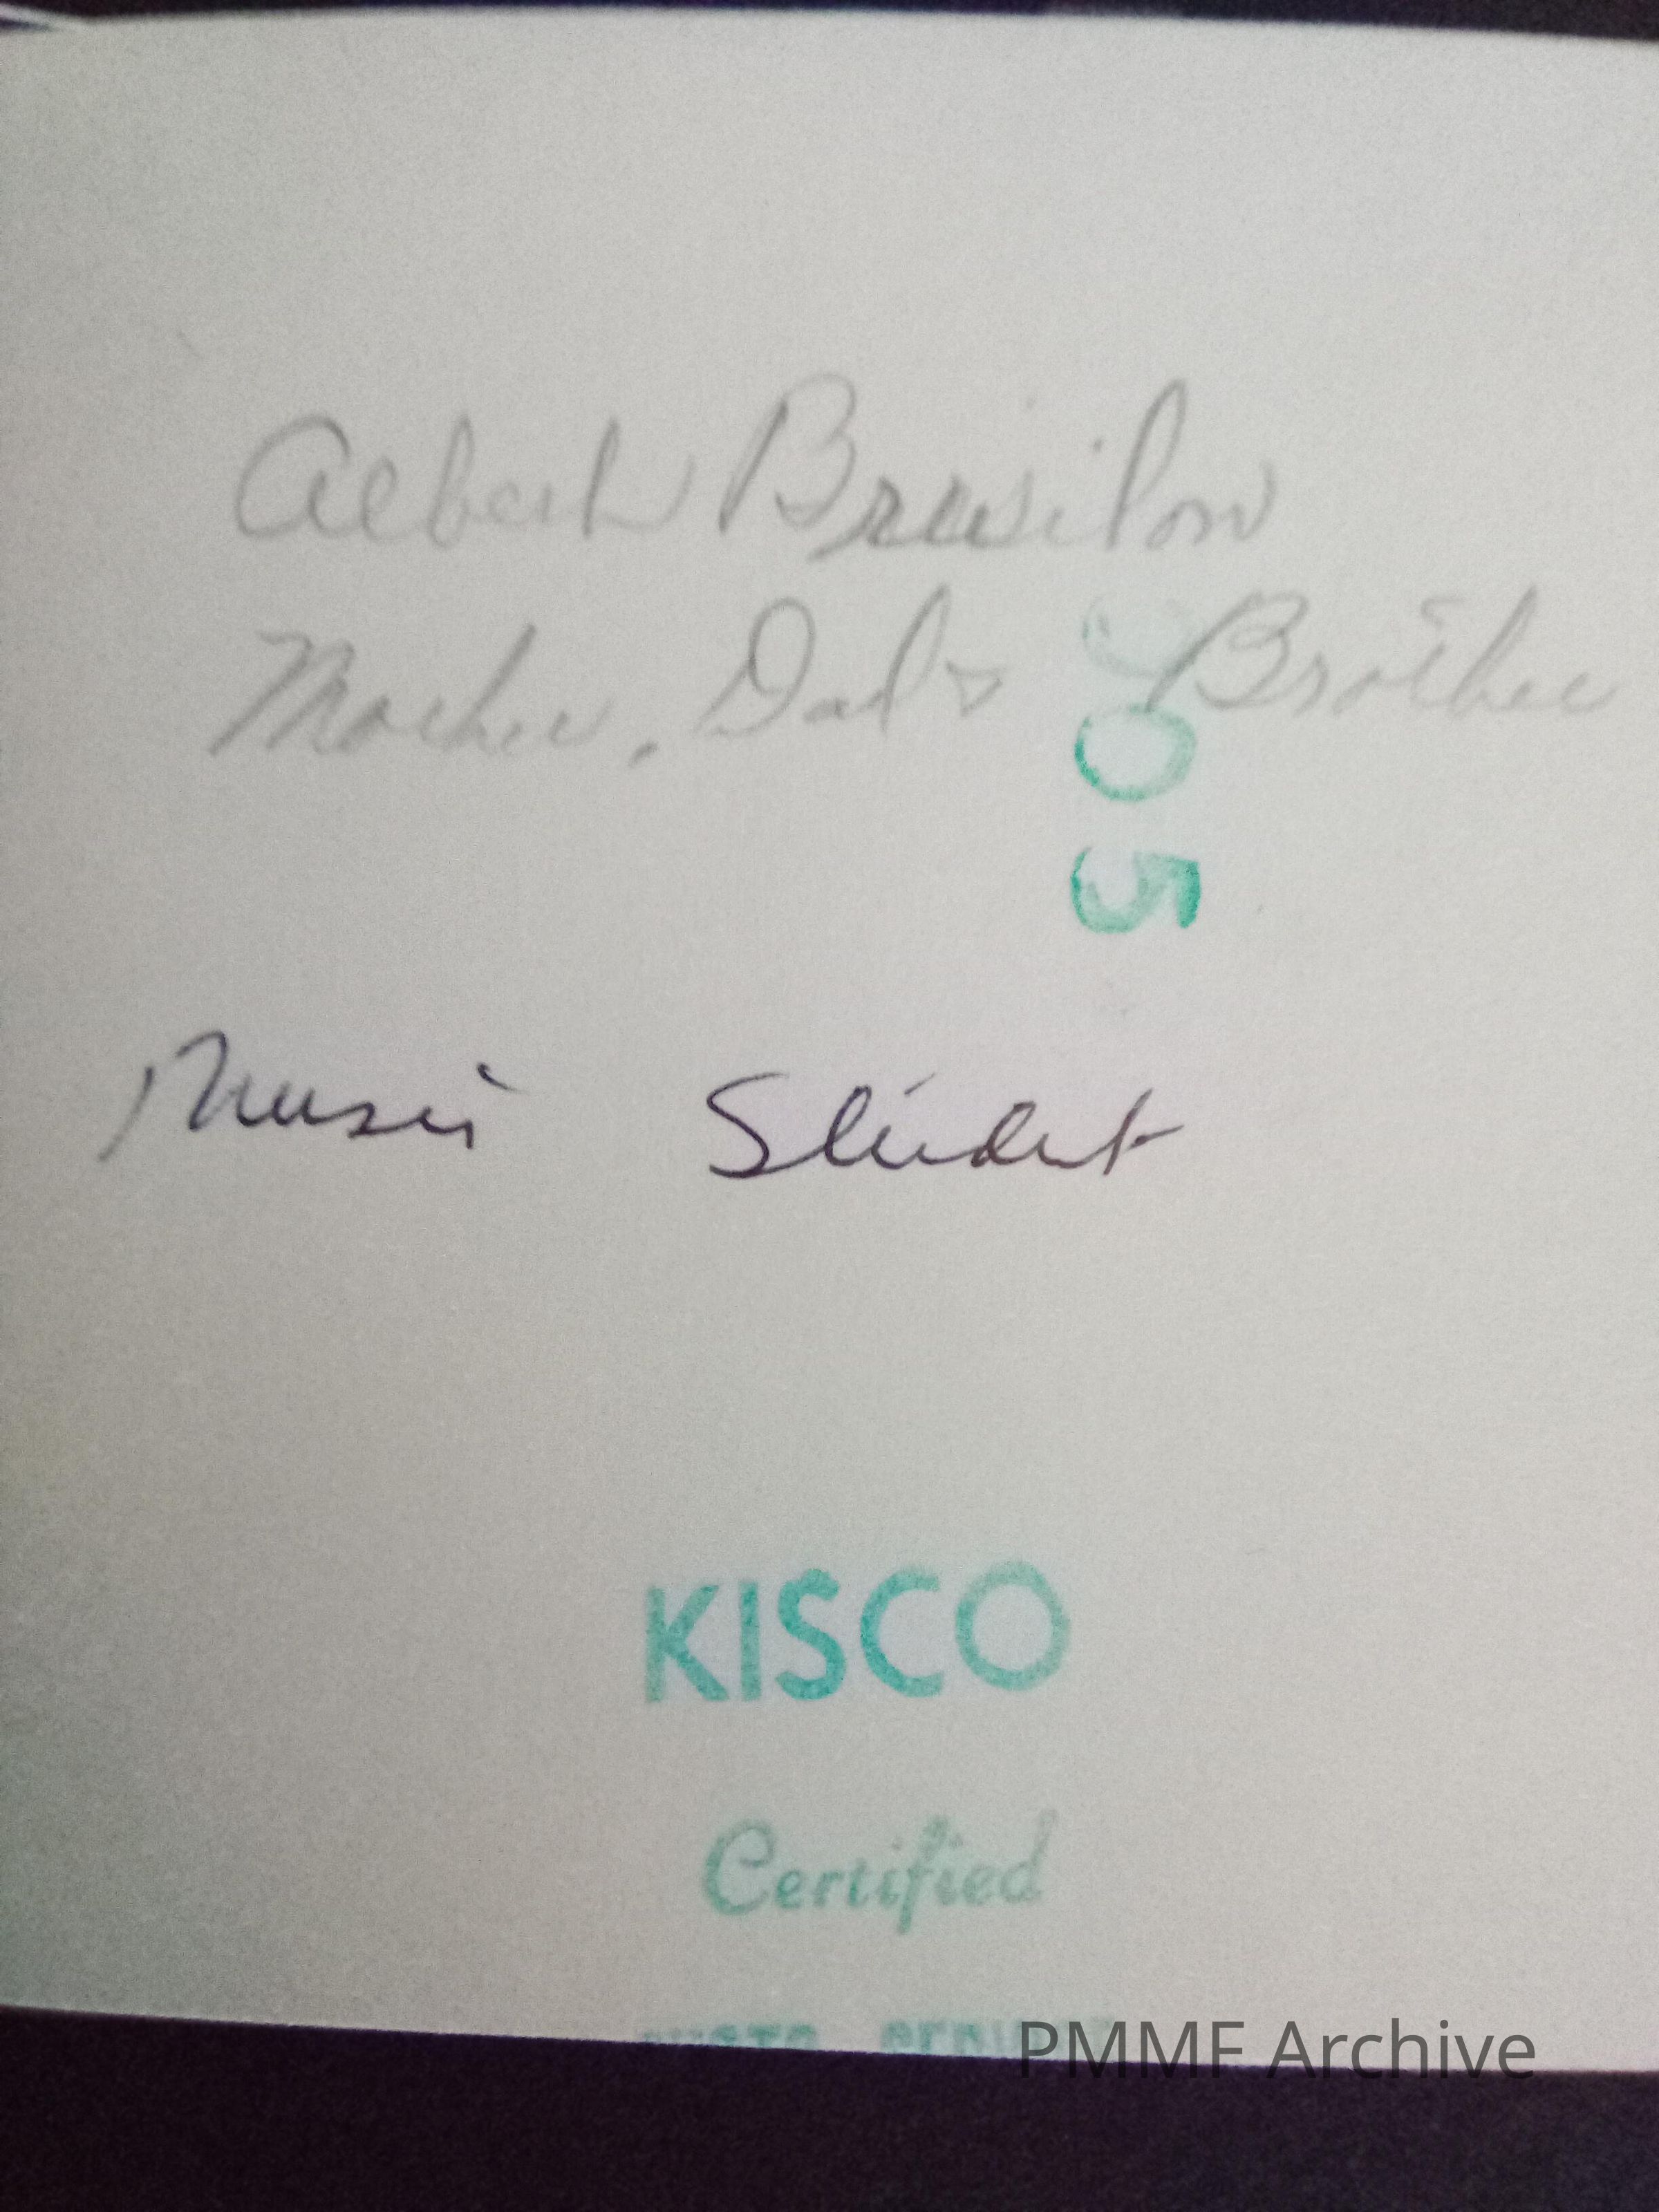 Albert Brasilow
Mother, Dad & Brother
05
Music Student
KISCO
Certified
PMMF Archive